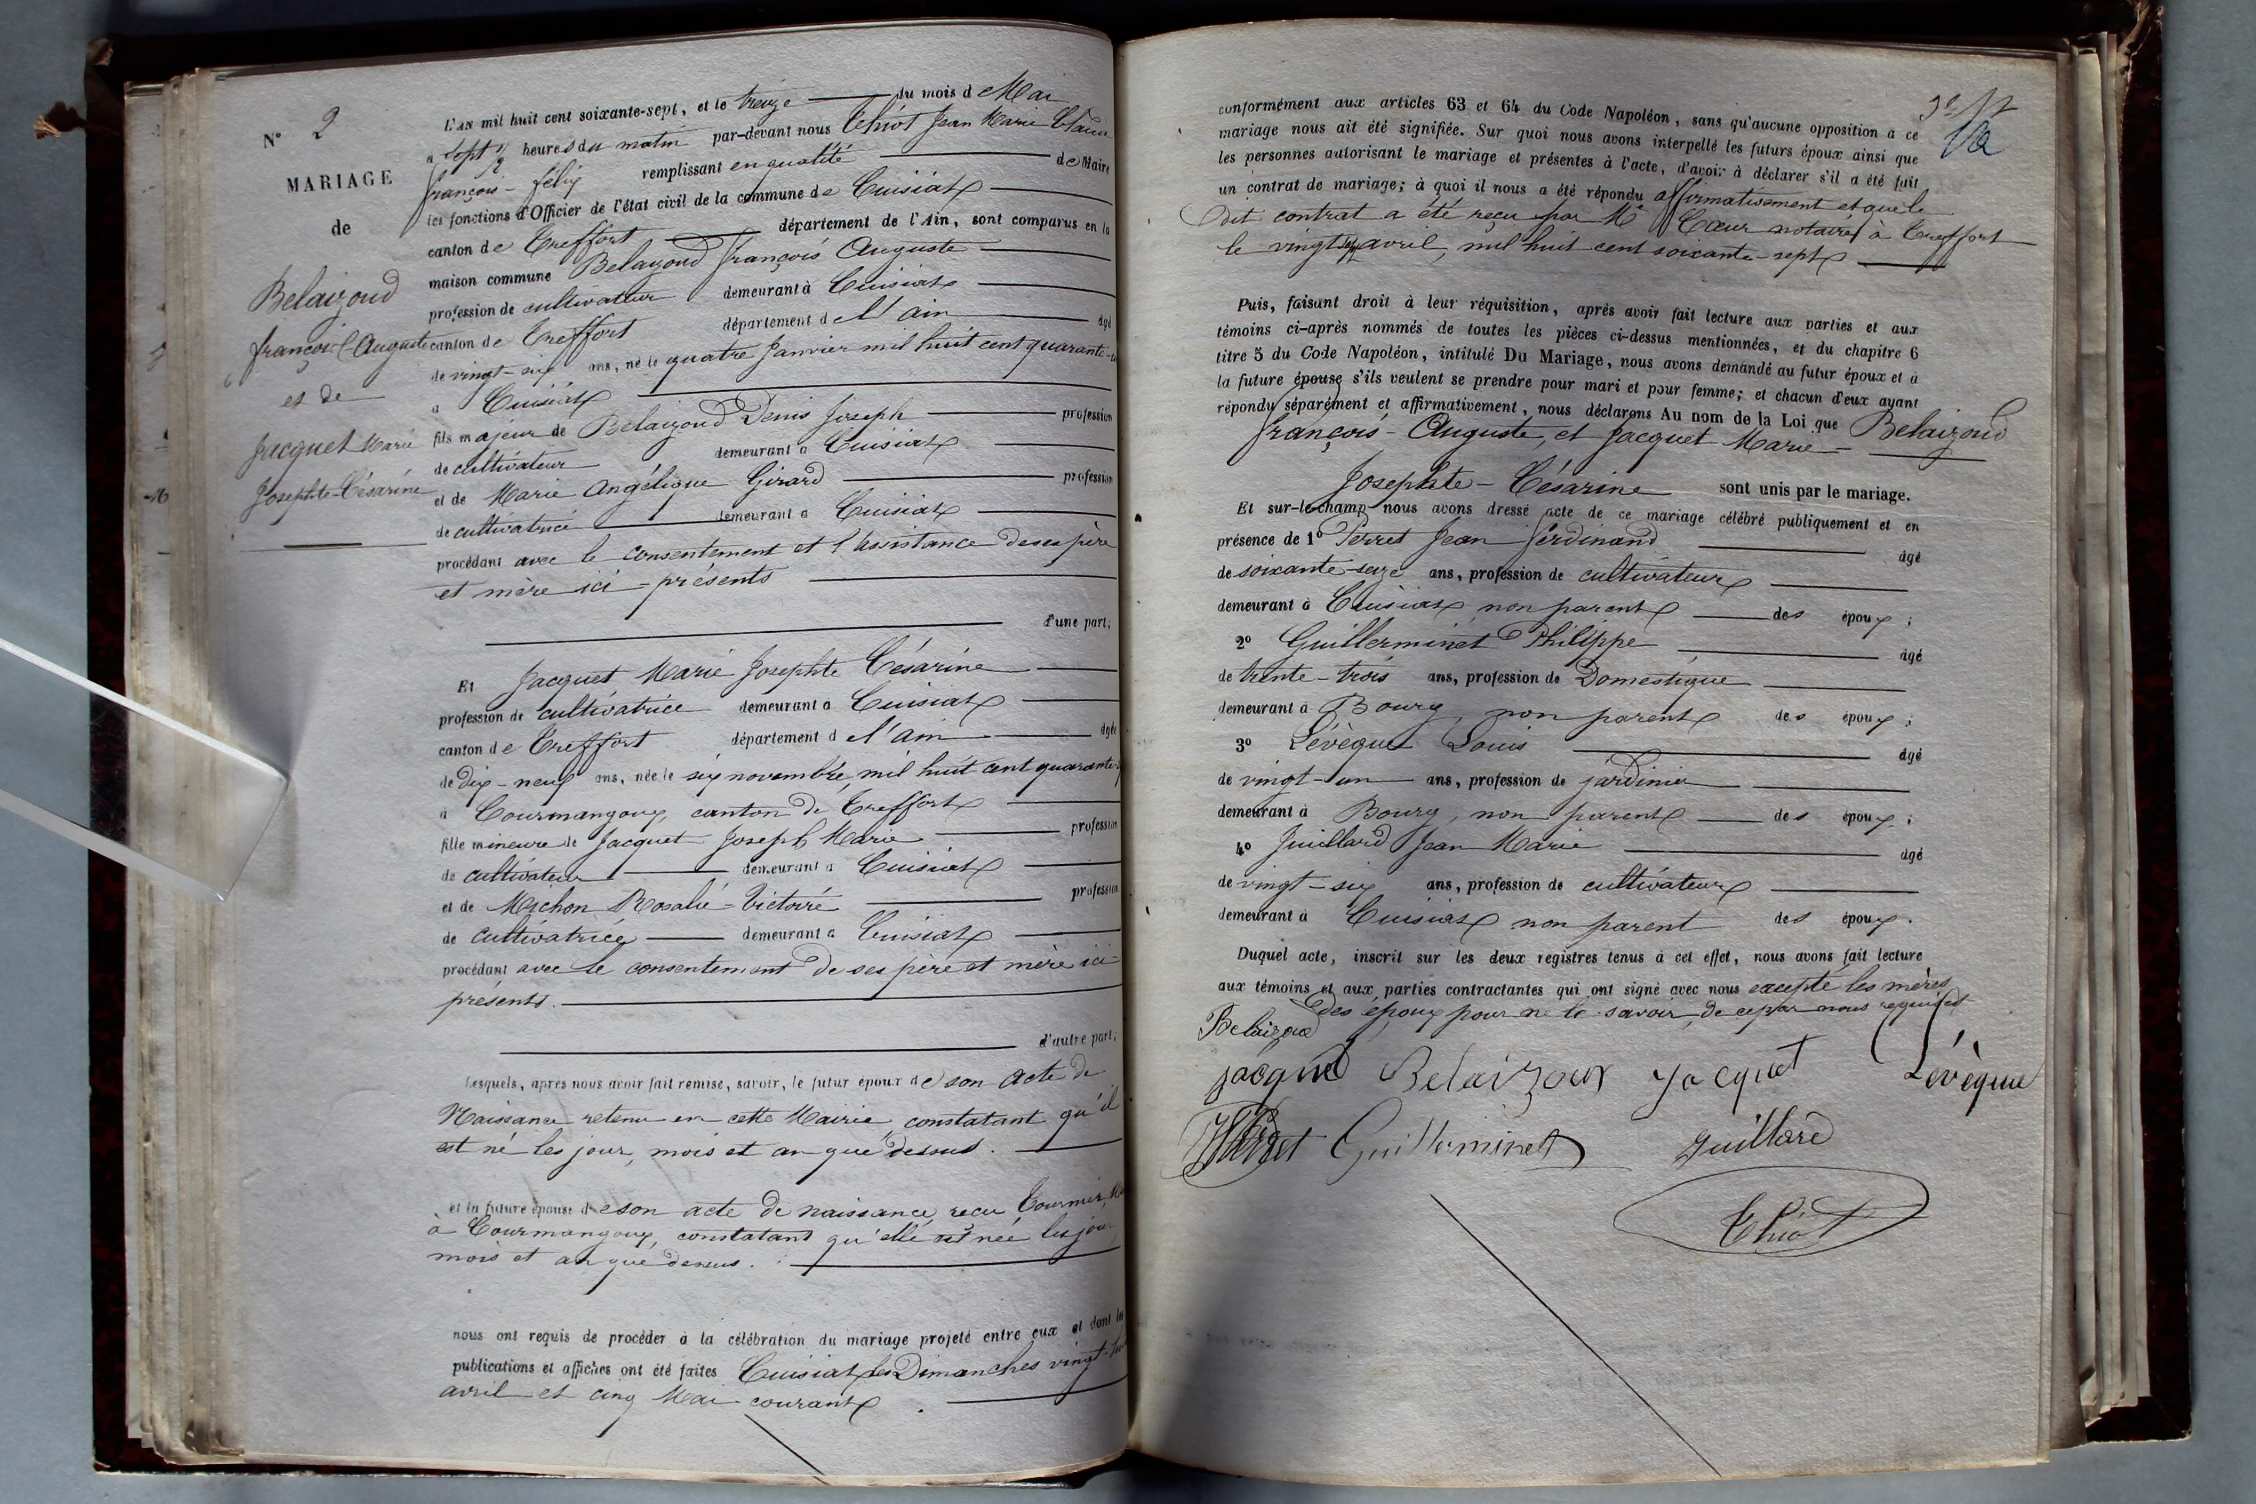 N° 2
MARIAGE
de
Belaizoud
françois-Auguste
et de
Jacquet Marie
Josephte-Césarine
L'AN mil huit cent soixante-sept, et le treize du mois de Mai
a sept heures du matin par-devant nous Chiot Jean Marie
françois-félix remplissant en qualité de Maire
les fonctions d'Officier de l'état civil de la commune de Cuisiat
canton de Treffort département de l'Ain, sont comparus en la
maison commune Belaizoud françois Auguste
profession de cultivateur demeurant à Cuisiat
canton de Treffort département de l'ain âgé
de vingt-six ans, né le quatre Janvier mil huit cent quarante-un
a Cuisiat
fils majeur de Belaizoud Denis Joseph profession
de cultivateur demeurant a Cuisiat
et de Marie Angélique Girard profession
de cultivatrice demeurant a Cuisiat
procédant avec le consentement et l'assistance de ses père
et mère ici-présents
d'une part;
Et Jacquet Marie Josephte Césarine
profession de cultivatrice demeurant a Cuisiat
canton de Treffort département de l'ain âgée
de dix-neuf ans, née le six novembre, mil huit cent quarante
à Courmangoux, canton de Treffort
fille mineure de Jacquet Joseph Marie profession
de cultivateur demeurant a Cuisiat
et de Michon Rosalie-Victoire profession
de cultivatrice demeurant a Cuisiat
procédant avec le consentement de ses père et mère ici-
présents.
d'autre part;
Lesquels, après nous avoir fait remise, savoir, le futur époux de son acte de
Naissance retenu en cette Mairie, constatant qu'il
est né les jour, mois et an que dessus.
et la future épouse de son acte de naissance, recu
à Courmangoux, constatant qu'elle est née les jour
mois et an que dessus.
nous ont requis de procéder à la célébration du mariage projeté entre eux et dont les
publications et affiches ont été faites Cuisiat les Dimanches vingt-huit
avril et cinq Mai courant
conformément aux articles 63 et 64 du Code Napoléon, sans qu'aucune opposition à ce
mariage nous ait été signifiée. Sur quoi nous avons interpellé les futurs époux ainsi que
les personnes autorisant le mariage et présentes à l'acte, d'avoir à déclarer s'il a été fait
un contrat de mariage; à quoi il nous a été répondu affirmativement et que le
dit contrat a été reçu par Me Cœur notaire à Treffort
le vingt avril, mil huit cent soixante-sept
Puis, faisant droit à leur réquisition, après avoir fait lecture aux parties et aux
témoins ci-après nommés de toutes les pièces ci-dessus mentionnées, et du chapitre 6
titre 5 du Code Napoléon, intitulé Du Mariage, nous avons demandé au futur époux et à
la future épouse s'ils veulent se prendre pour mari et pour femme; et chacun d'eux ayant
répondu séparément et affirmativement, nous déclarons Au nom de la Loi que Belaizoud
françois-Auguste, et Jacquet Marie-
Josephte-Césarine sont unis par le mariage.
Et sur-le-champ nous avons dressé acte de ce mariage célébré publiquement et en
présence de 1° Perret Jean ferdinand âgé
de soixante-seize ans, profession de cultivateur
demeurant à Cuisiat non parent des époux;
2° Guillerminet Philippe âgé
de trente-trois ans, profession de Domestique
demeurant à Bourg, non parent des époux;
3° Lévèque Louis âgé
de vingt-un ans, profession de jardinier
demeurant à Bourg, non parent des époux;
4° Juillard Jean Marie âgé
de vingt-six ans, profession de cultivateur
demeurant à Cuisiat non parent des époux.
Duquel acte, inscrit sur les deux registres tenus à cet effet, nous avons fait lecture
aux témoins et aux parties contractantes qui ont signé avec nous excepté les mères
des époux pour ne le savoir, de ce par nous requises
Belaizoud
jacquet Belaizoux Jacquet Lévèque
Perret Guillerminet Juillard
Chiot